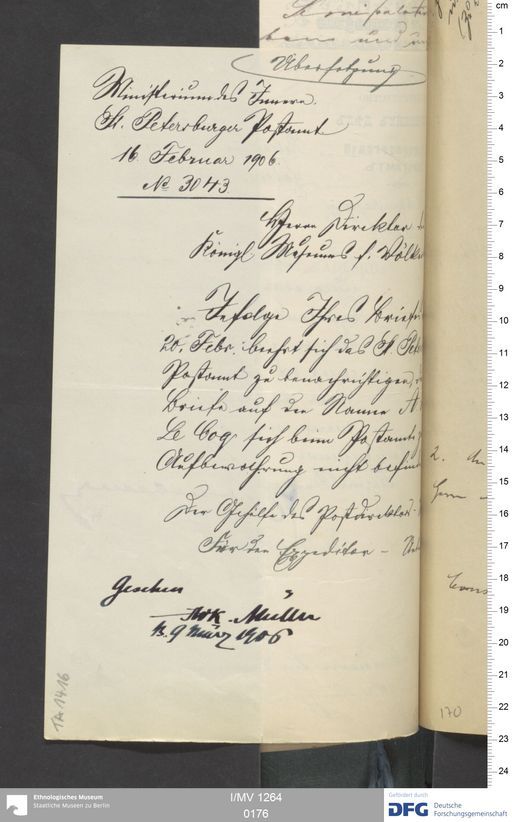 Übersetzung
Ministerium des Innern.
St. Petersburger Postamt
16. Februar 1906.
№ 3043
Herrn Direktor
Königl Museums f. Völke
Infolge Ihres Briefes
20. Febr. beehrt sich das St. Pete
Postamt zu benachrichtigen,
Briefe auf den Namen A
Le Coq sich beim Postamte
Aufbewahrung nicht befin
Der Gehilfe des Postdirektors -
Für den Expeditor -
Gesehen
Müller
B. 9 März 1906
TA 1416
2.
170
cm
1
2
3
4
5
6
7
8
9
10
11
12
13
14
15
16
17
18
19
20
21
22
23
24
Ethnologisches Museum
Staatliche Museen zu Berlin
I/MV 1264
0176
Gefördert durch
DFG Deutsche
Forschungsgemeinschaft